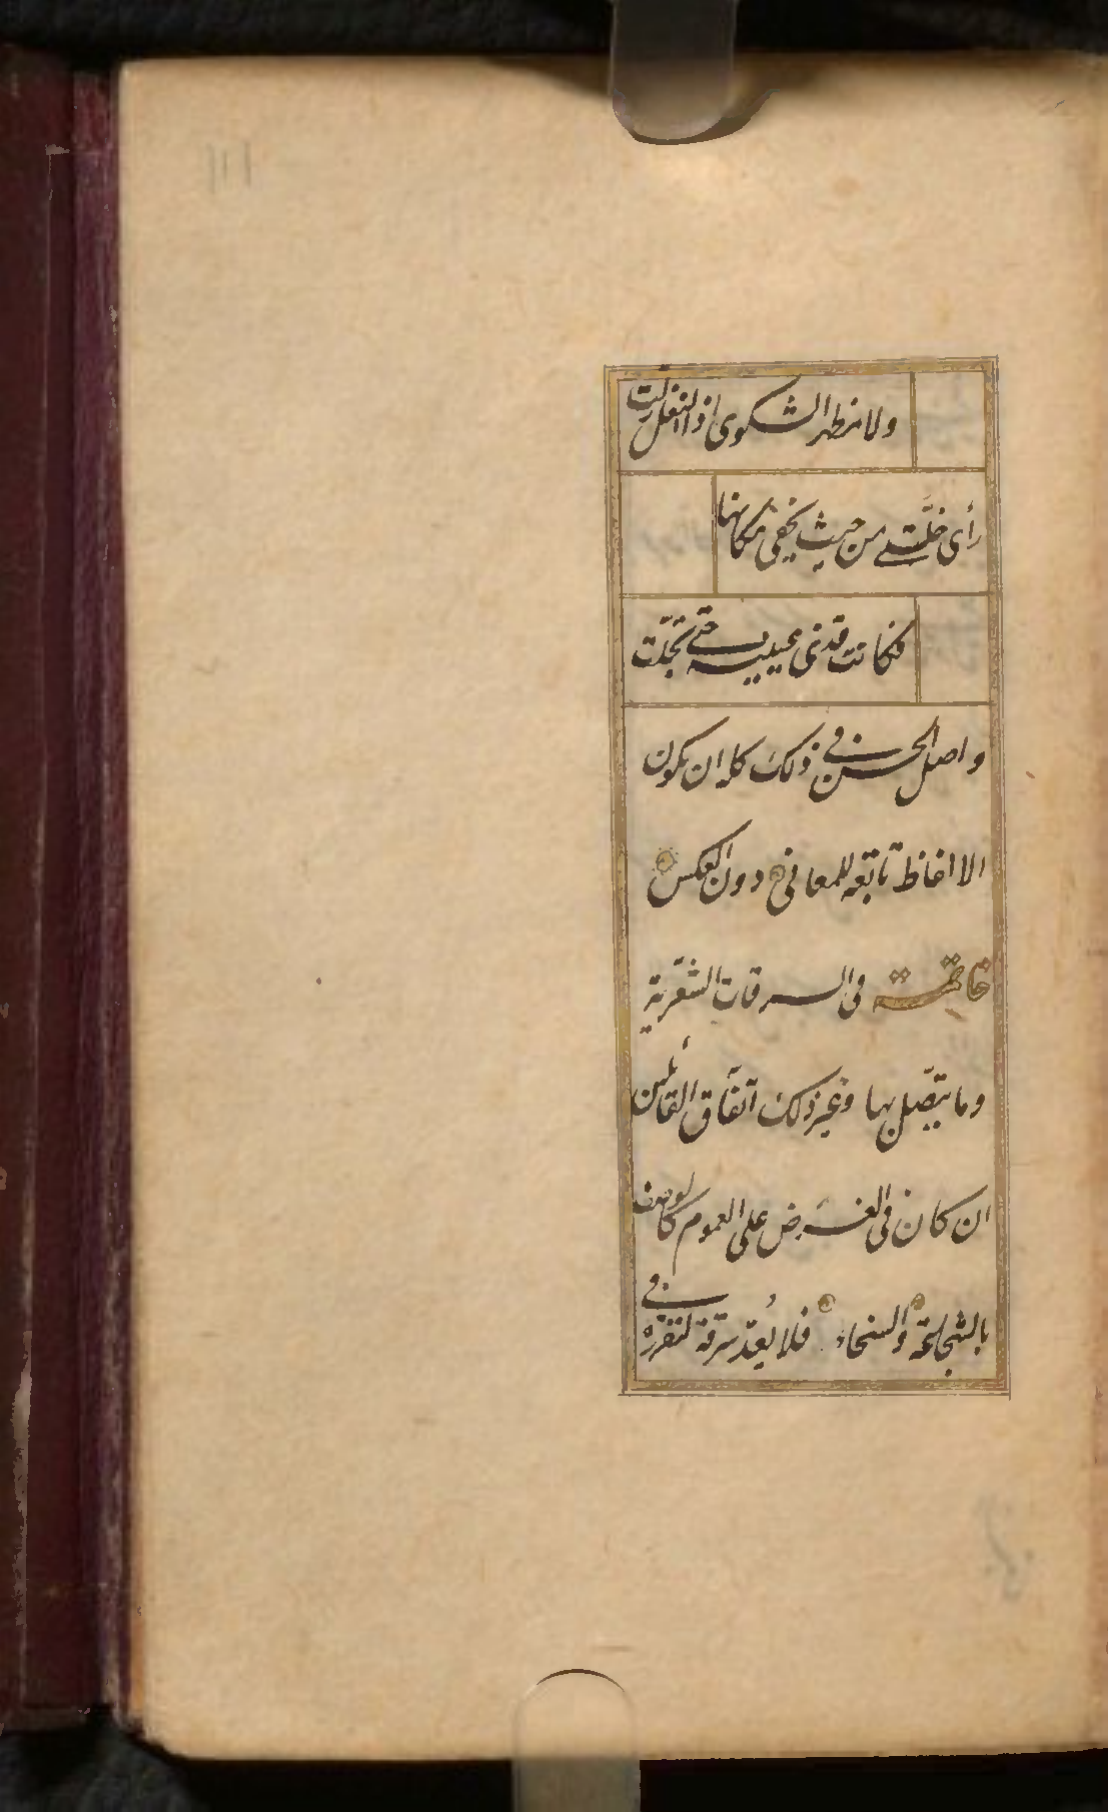 ١١١
ولا مظهر الشكوى اذا النعل زلت
رأى خلّتي من حيث يخفى مكانها
فكانت قذى عينيه حتى تجلّت
واصل الحسن في ذلك كله ان يكون
الالفاظ تابعه للمعاني دون العكس
خاتمة فى السرقات الشعرية
وما يتصّل بها وغير ذلك اتفاق القائلين
ان كان فى الغرض على العموم كالوصف
بالشجاعة والسخاء فلا يُعدّ سرقة لتقرره في